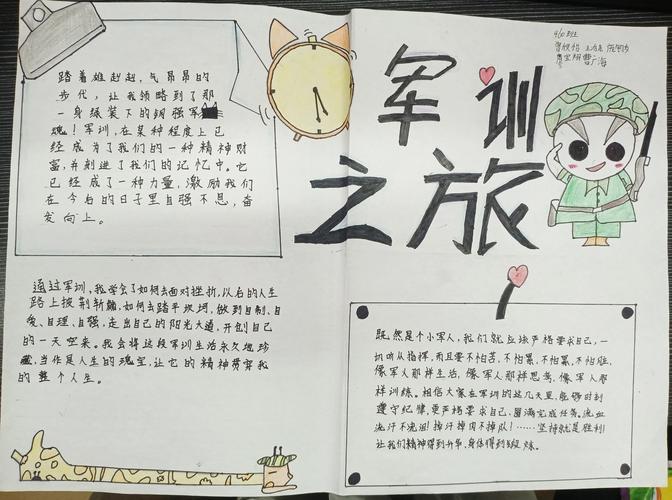 踏着雄赳赳,气昂昂的
步代,让我领略到了那
一身绿装下的钢强军
魂!军训,在某种程度上已
经成为了我们的一种精神财
富,并刻进了我们的记忆中。它
已经成了一种力量,激励我们
在今后的日子里自强不息,奋
发向上。
军训
之旅
通过军训,我学会了如何去面对挫折,以后的人生
路上披荆斩棘,如何去踏平坎坷,做到自制、自
爱、自理、自强,走出自己的阳光大道,开创自己
的一天空来。我会将这段军训生活永久地珍
藏,当作是人生的瑰宝,让它的精神贯穿我
的整个人生。
既然是个小军人,我们就应该严格要求自己,一
切听从指挥,而且要不怕苦、不怕累、不怕脏,
像军人那样生活,像军人那样思考,像军人那
样训练。相信大家在军训的这几天里,能够时刻
遵守纪律,更严格要求自己,圆满完成任务。流血
流汗不流泪!掉汗掉肉不掉队!……坚持就是胜利!
让我们精神得到升华,身体得到锻炼。